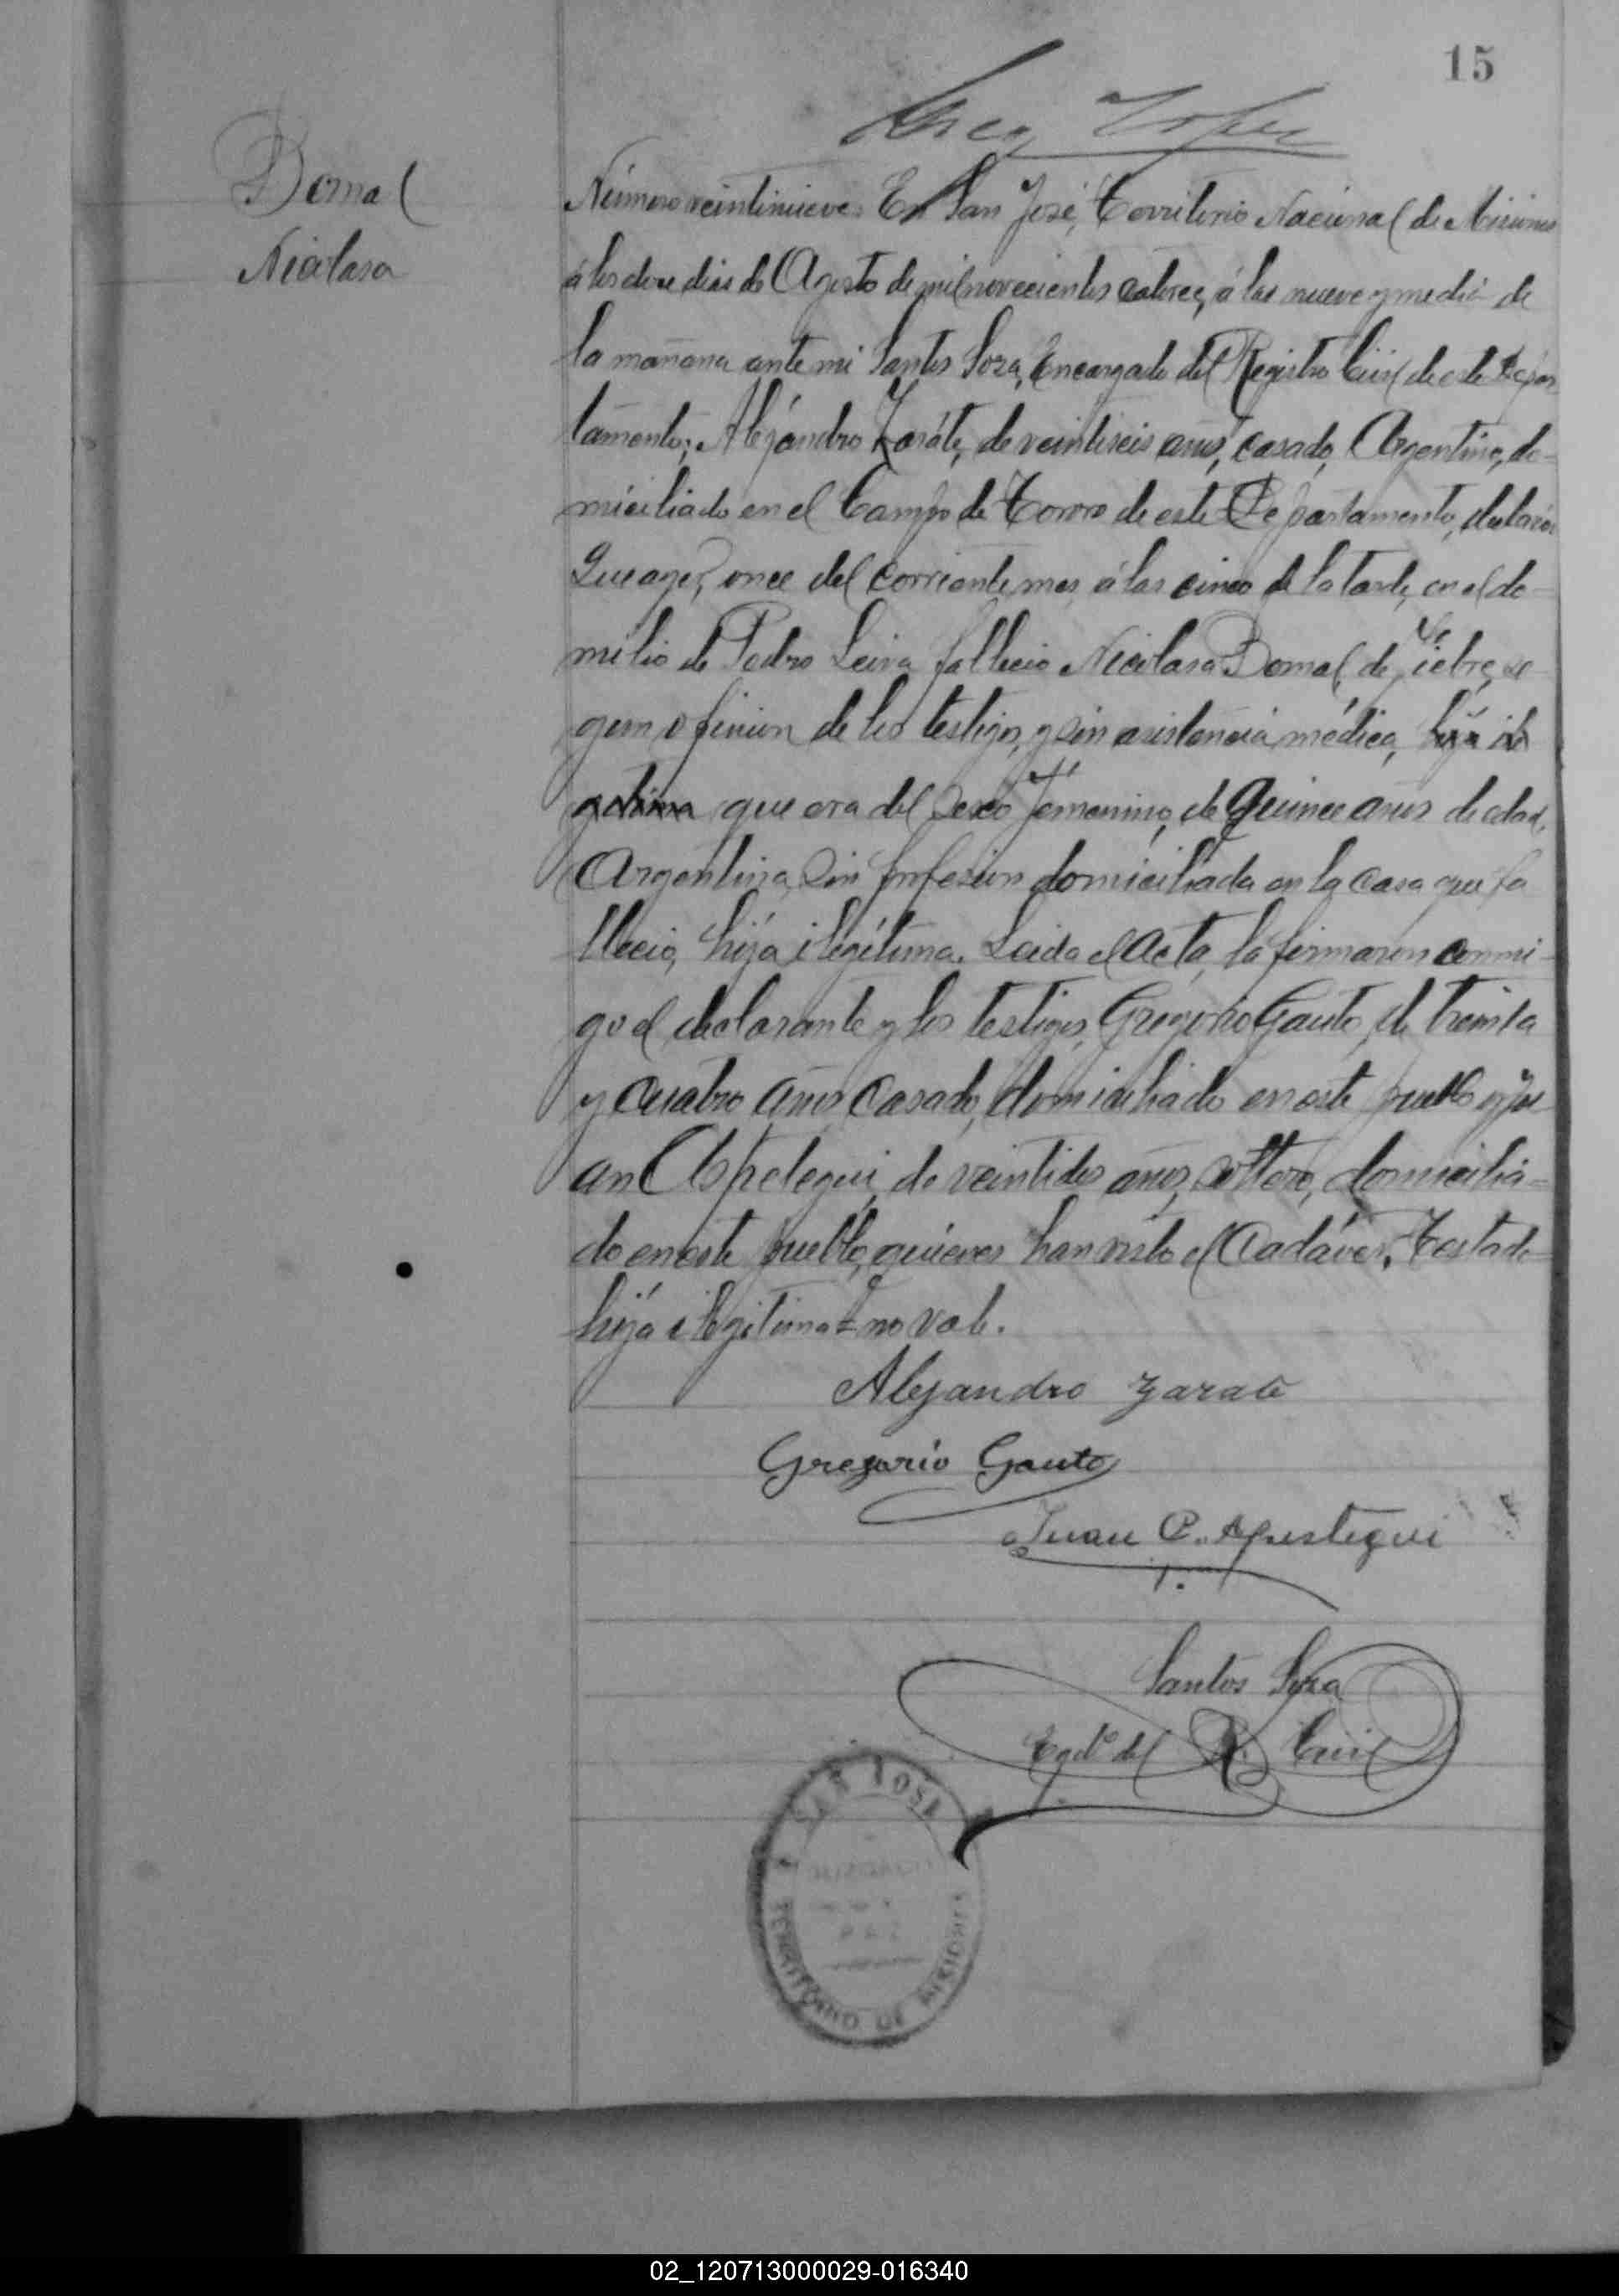 15
Domal
Nicolasa
Número veintinueve En San José, Territorio Nacional de Misiones
á los doce dias de Agosto de mil novecientos catorce, á las nueve y media de
la mañana ante mi Santos Soza, Encargado del Registro Civil de este Depar
tamento; Alejandro Zarate, de veintiseis años, casado, Argentino, do-
miciliado en el Campo de de este Departamento, declaró:
Que ayer, once del corriente mes, á las cinco de la tarde, en el do-
milio de Pedro Leiva falleció Nicolasa Domal, de fiebre, se
gun opinion de los testigos, y sin asistencia médica, hija ile
gitima que era del Sexo femenino, de quince años de edad,
Argentina, Sin profesion domiciliada en la casa que fa
lleció, hija ilegítima. Leida el Acta, la firmaron conmi-
go el declarante y los testigos, Gregorio Gauto, de treinta
y cuatro años, casado, domiciliado en este pueblo y Ju
an Apestegui, de veintidos años, soltero, domicilia-
do en este pueblo, quienes han visto el Cadáver. Testado
hija ilegitima = no vale.
Alejandro Zarate
Gregorio Gauto
Juan C. Apestegui
Santos Soza
Egdo del R. Civil
SAN JOSE
JUZGADO
PAZ
TERRITORIO DE MISIONES
02_120713000029-016340